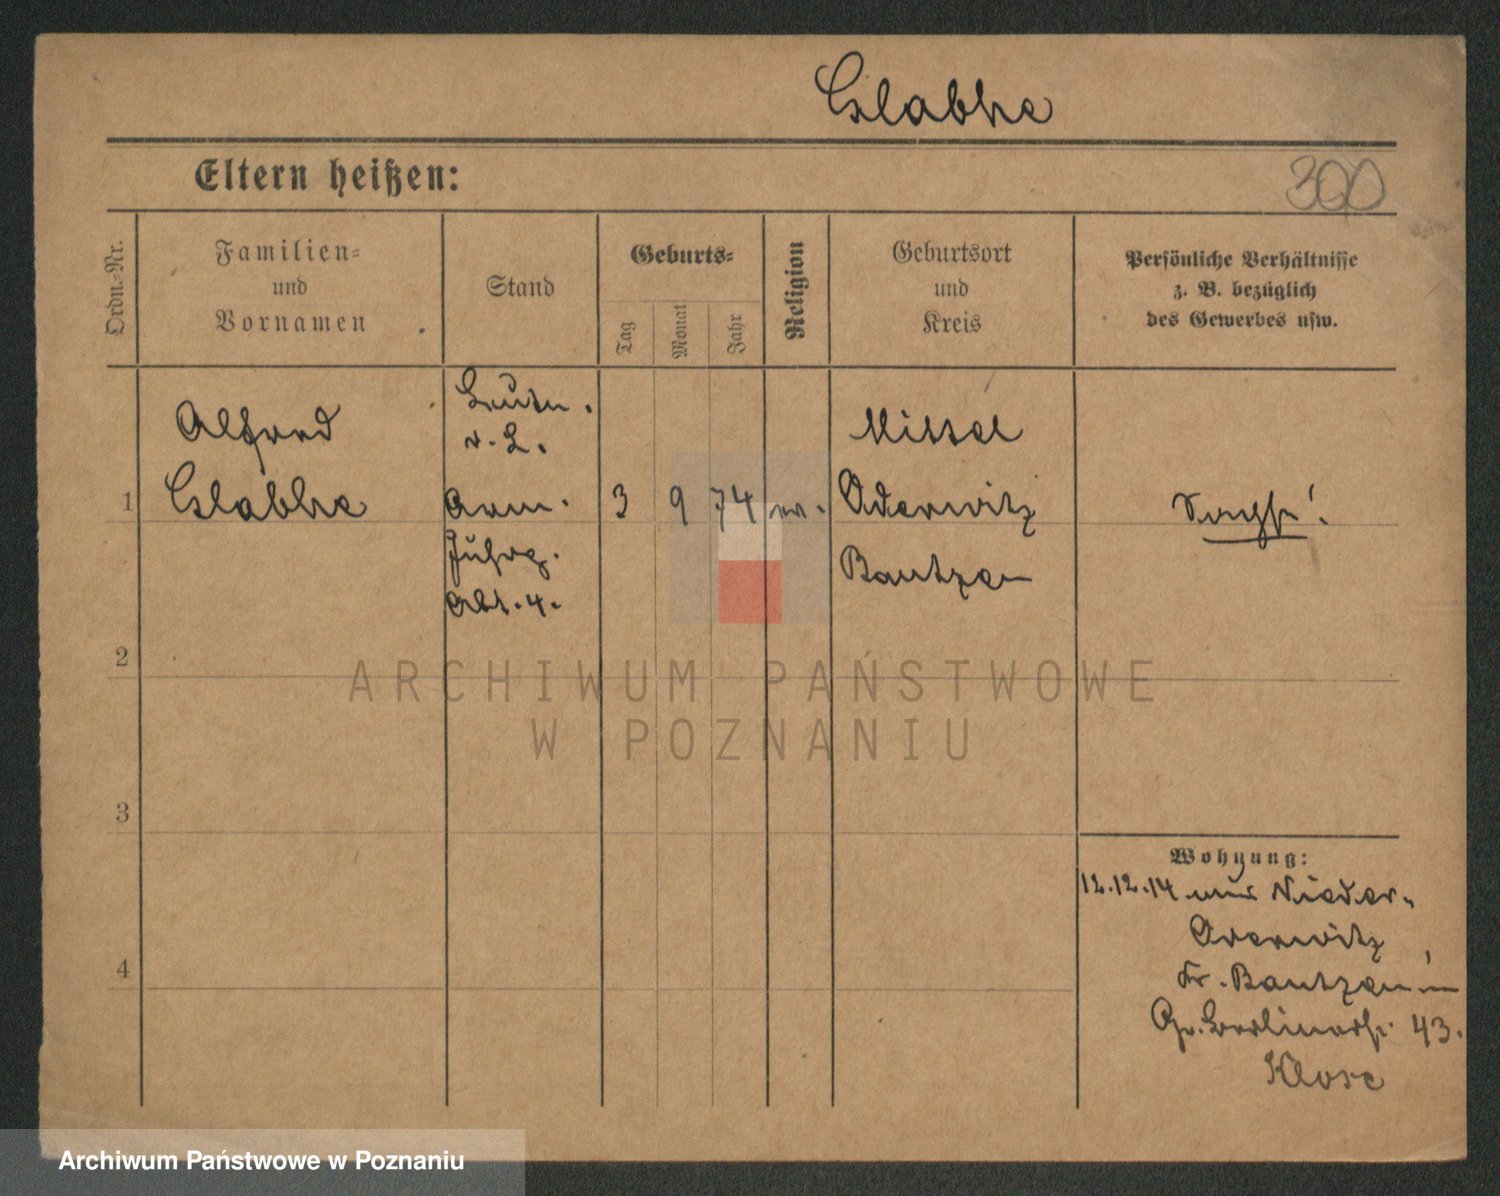 Glabhe
Eltern heißen:
300
Ordn.-Nr.
Familien-
und
Vornamen
Stand
Geburts-
Tag
Monat
Jahr
Religion
Geburtsort
und
Kreis
Persönliche Verhältnisse
z. B. bezüglich
des Gewerbes usw.
1
Alfred
Glabhe
Leutn.
d. L.
Arm.
Fuhrp.
Abt. 4.
3
9
74
ev.
Mittel
Oderwitz
Bautzen
2
3
4
Wohnung:
12.12.14 aus Nieder-
Oderwitz
Kr. Bautzen in
Gr. Berlinerstr. 43.
Klose
ARCHIWUM PAŃSTWOWE
W POZNANIU
Archiwum Państwowe w Poznaniu